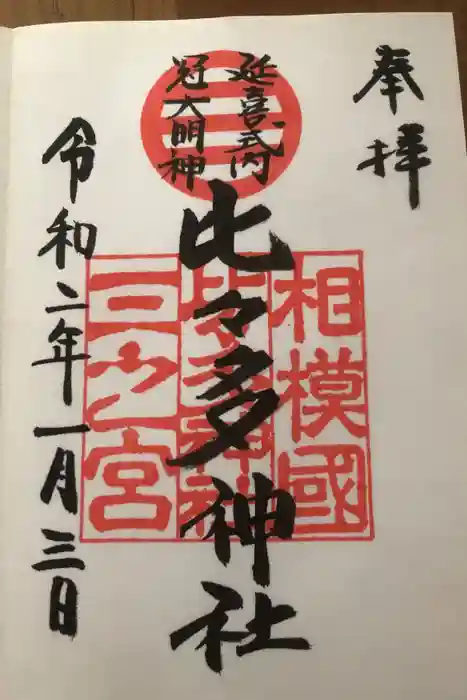 奉拝
延喜式内
冠大明神
比々多神社
相模國
比々多神社
三之宮
令和二年一月三日